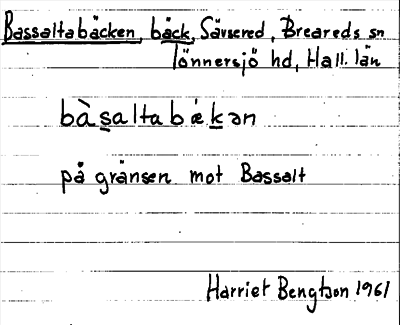 Bassaltabäcken, bäck, Sävsered, Breareds sn
Tönnersjö hd, Hall. län
bàs̲altabæ̀k̲ən
på gränsen mot Bassalt
Harriet Bengtson 1961